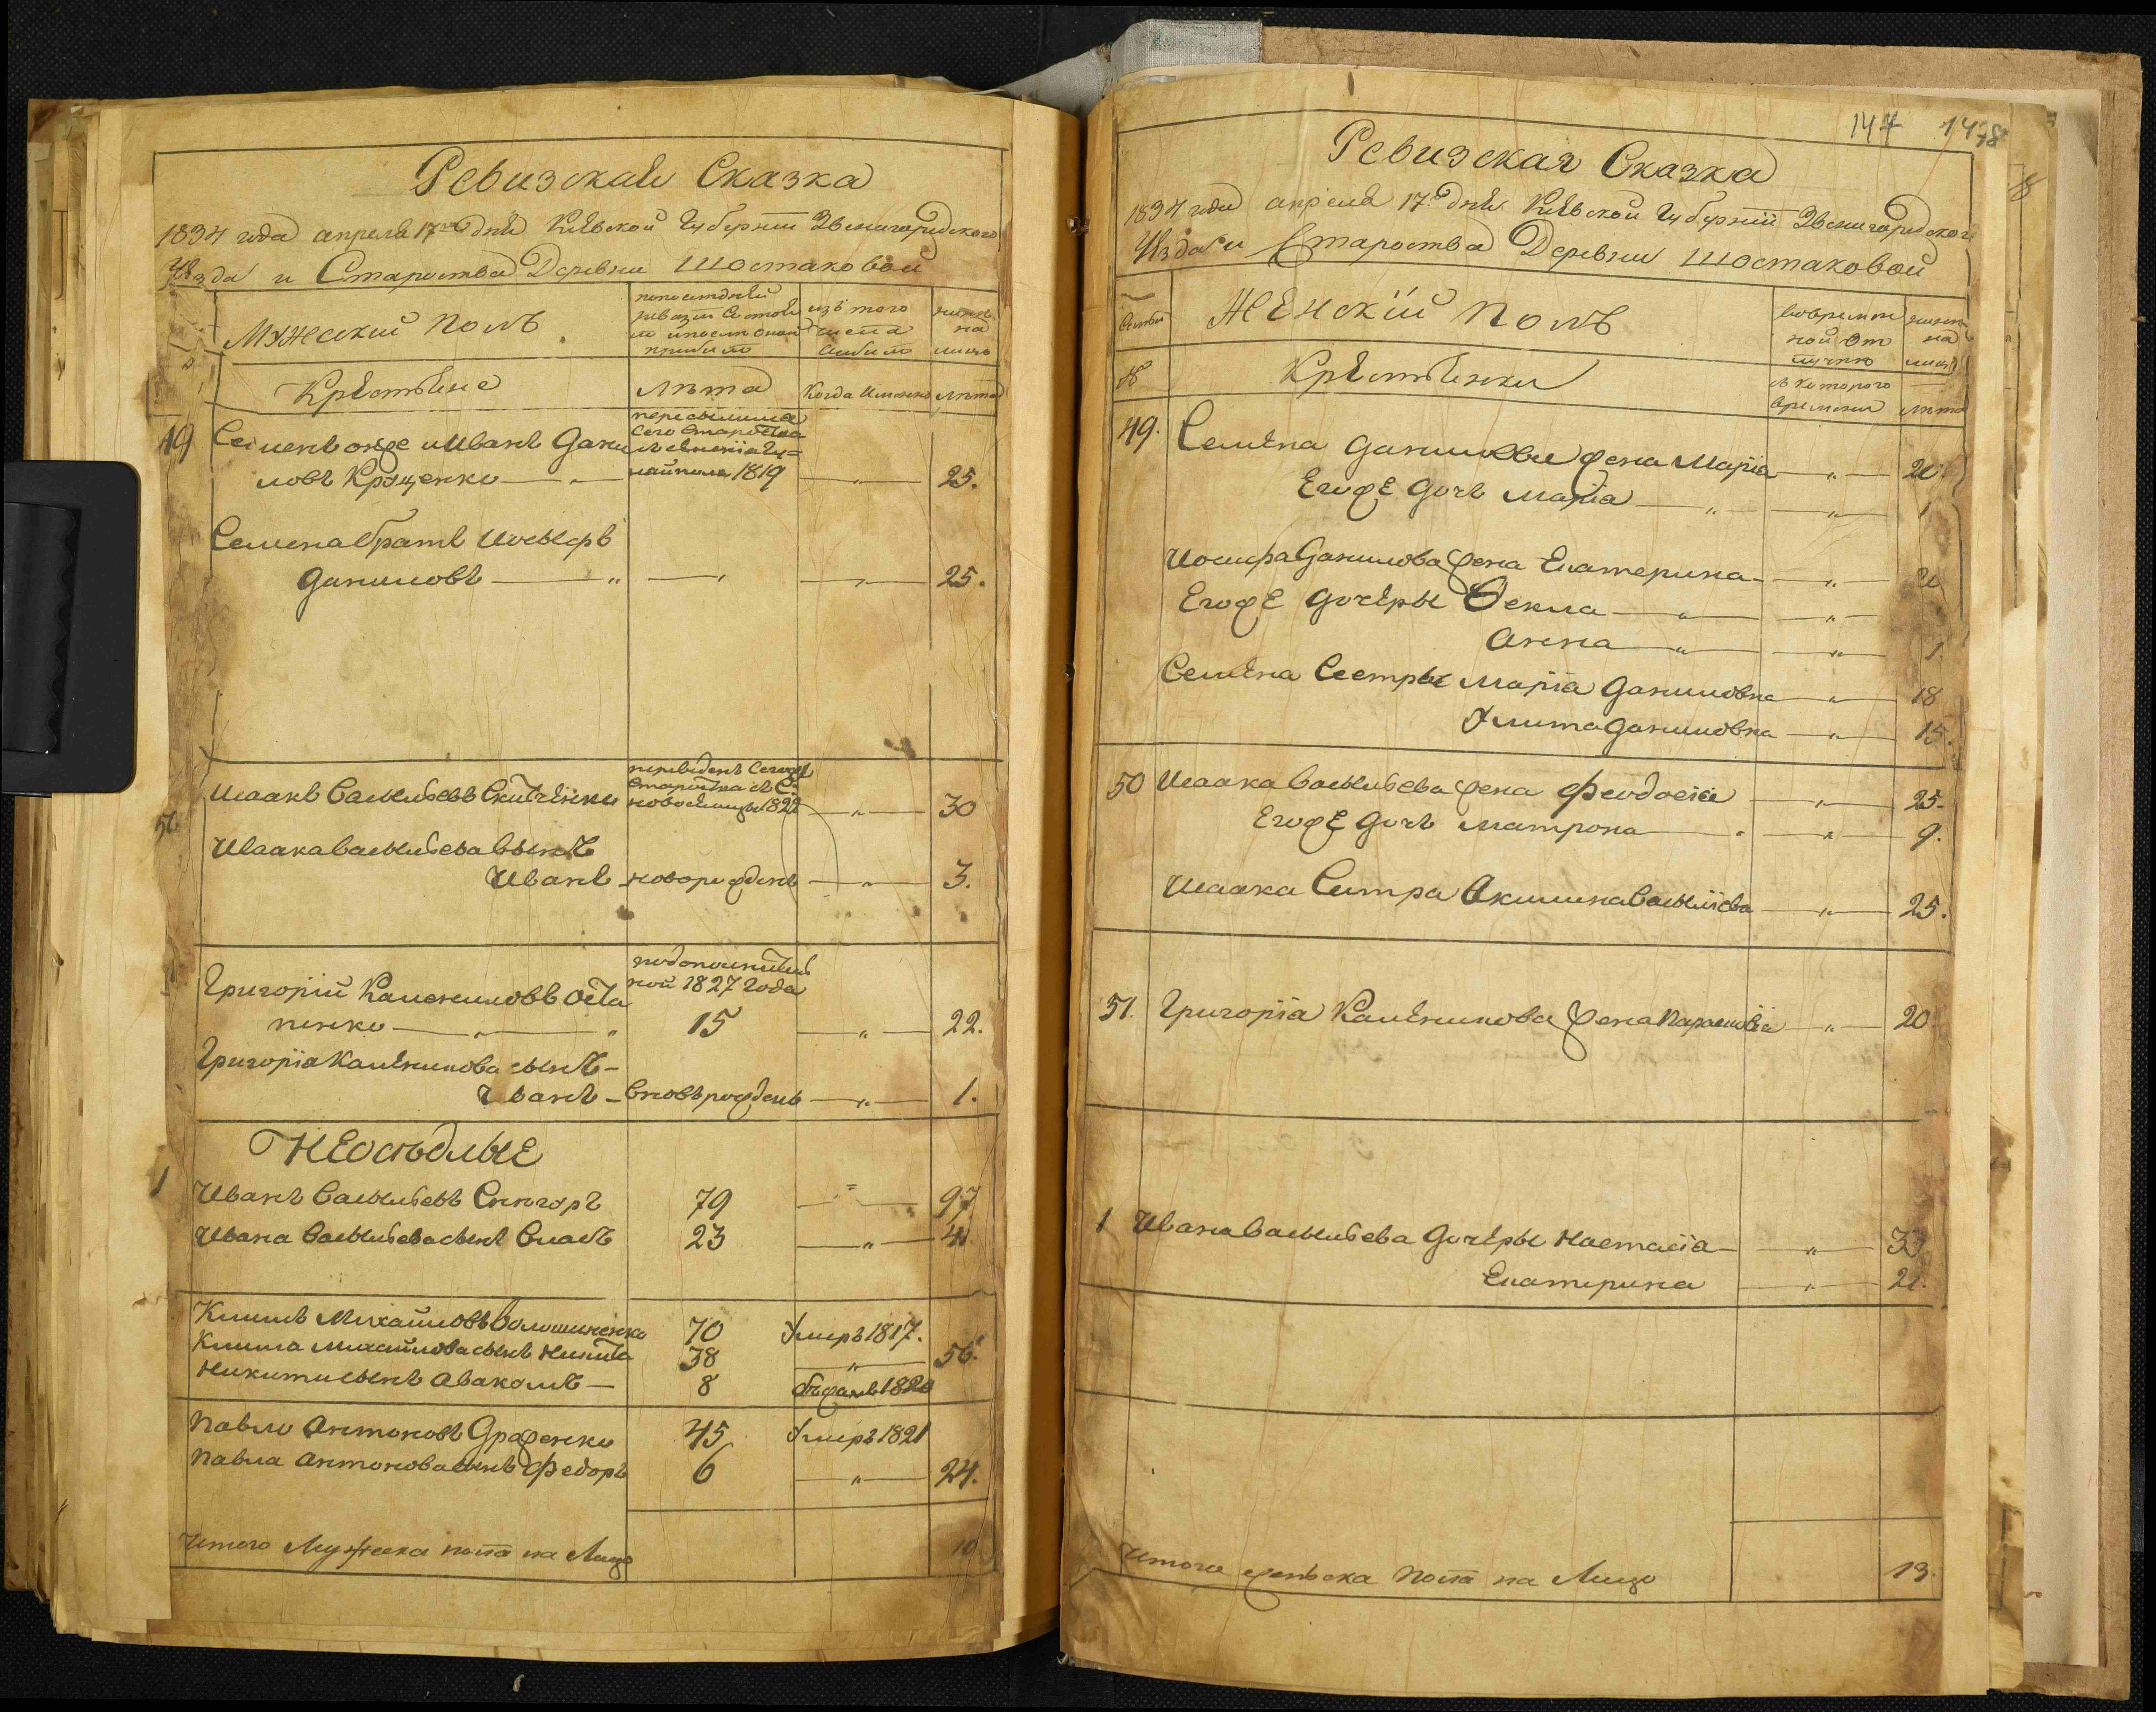 Ревизская Сказка
1834 года апреля 17го дня Кіевской Губерніи Звенигородского
Уѣзда и Староства Деревни Шостаковой
Мужеский полъ
по последней ревизіи состояло и после оной прибыло
изъ того числа выбыло
нынѣ на лицо
Крестьяне
Лѣта
Когда Именно
Лѣта
49 Семенъ онже и Иванъ Дани
ловъ Крщенко
1819
25.
Семена братъ Иосыфъ
Даниловъ 25.
Исаакъ Васыльевъ 1822 30
Исаака Васыльева сынъ
Иванъ новорожденъ 3.
Григорій Каленниковъ Оста
пенко 15 22.
1827 года
Григорія Каленикова сынъ
Иванъ вновьрожденъ 1.
Неосѣдлые
1 Иванъ Васыльевъ 79 97
Ивана Васыльева сынъ Власъ 23 41
Климъ Михайловъ Волошиненко 70 Умиръ 1817.
Клима Михайлова сынъ Никита 38 56.
Никиты сынъ Авакомъ 8 1820
Павло Антоновъ Драженко 45 Умиръ 1821
Павла Антонова сынъ Федоръ 6 24.
Итого Мужеска пола на Лицо 10
147 148
Ревизская Сказка
1834 года апреля 17го дня Кіевской Губерніи Звенигородского
Уѣзда и Староства Деревни Шостаковой
Семьи
Женскій полъ
во временной отлучке
нынѣ на лицо
№
Крестьянки
съ которого времени
лѣта
49. Семена Данилова жена Марія 20.
Егоже дочь Марія 1
Иосифа Данилова жена Екатерина
Егоже дочеры Фекла
Анна 1.
Семена Сестры Марія Даниловна 18
Улита Даниловна 15.
50 Исаака Васыльева жена Феодосія 25.
Егоже дочь Матрона 9.
Исаака Систра Акилина Васыліева 25.
51. Григорія Каленикова жена Парасковія 20
1 Ивана Васыльева дочеры Настасія 33
Екатерина 21.
Итого женьска пола на Лицо 13.